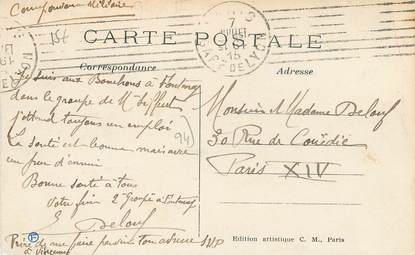 Correspondance Militaire
15f
7
JUILLET
15
GARE DE LYON
CARTE POSTALE
Correspondance
Adresse
Je suis aux Bouchons à Fontenay
dans le groupe de Mr
j'attend toujours un emploi
La santé est bonne mais avec
un peu d'ennui
Bonne santé à tous
Votre fils 2e Groupe à Fontenay
E Delouf
94
Prière de me faire parvenir ton adresse SVP
à Vincennes
Monsieur et Madame Delouf
30 Rue de Coëdic
Paris XIV
Edition artistique C. M., Paris